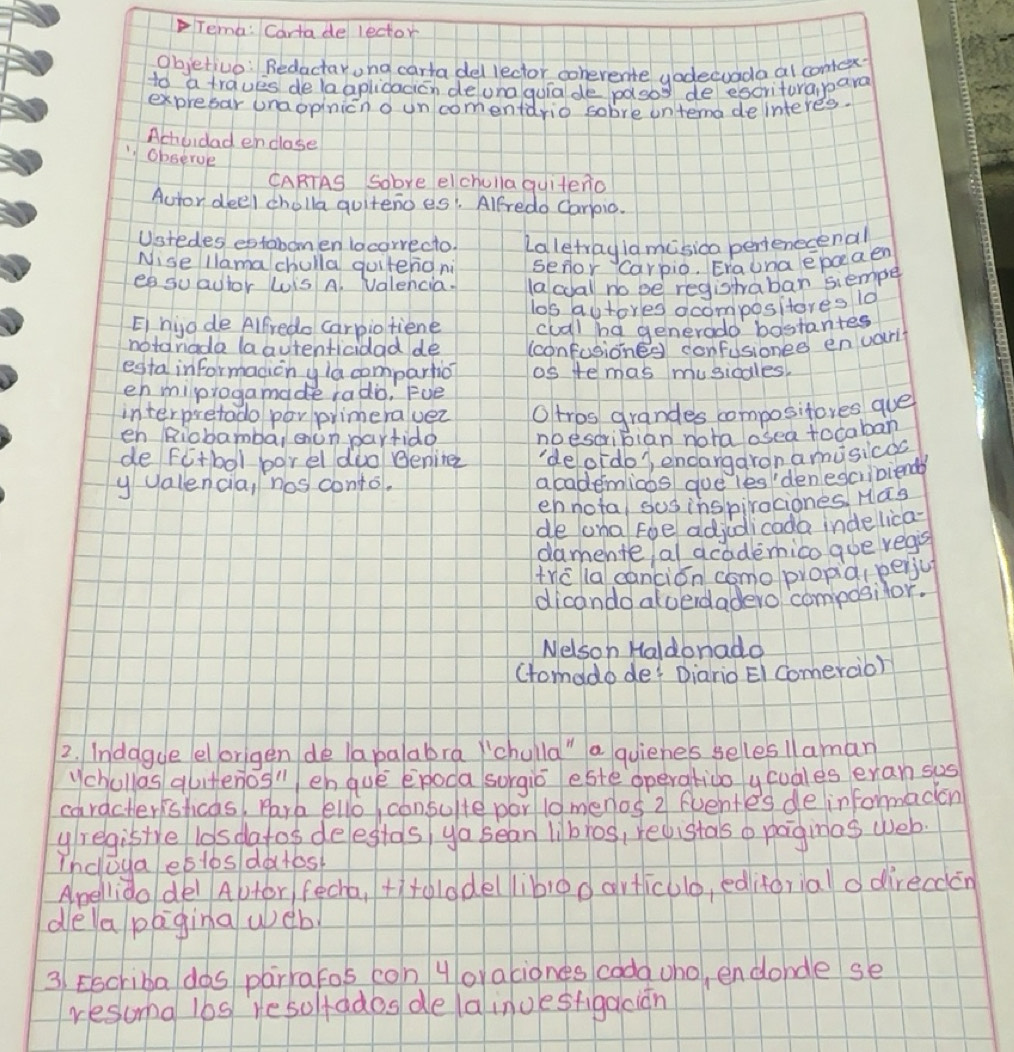 ▷Tema: Carta de lector
Objetivo: Redactar una carta del lector coherente y adecuada al contex-
to a través de la aplicación de una guía de pasos de escritura, para
expresar una opinión o un comentario sobre un tema de interés.
Actividad en clase
1. Observe
CARTAS sobre el chulla quiteño
Autor deel cholla quiteño es: Alfredo Carpio.
Ustedes estaban en lo correcto.
Ni se llama chulla quiteño ni
es su autor Luis A. Valencia.
El hijo de Alfredo Carpio tiene
notariada la autenticidad de
esta información y la compartió
en mi progama de radio. Fue
interpretado por primera vez
en Riobamba, en un partido
de fútbol por el dúo Benitez
y Valencia, nos contó.
La letra y la música pertenecen al
señor Carpio. Era una época en
la cual no se registraban siempe
los autores o compositores lo
cual ha generado bastantes
(confusiones) confusiones en vari
os temas musicales.
Otros grandes compositores que
no escribían nota o sea tocaban
"de oído", encargaron a músicos
académicos que les "den escribiendo
en nota, sus inspiraciones. Más
de una fue adjudicada indelica-
damente, al académico que regis
tró la canción como propia, perju
dicando al verdadero compositor.
Nelson Maldonado
(tomado de: Diario El Comercio)
2. Indague el origen de la palabra "chulla" a quienes se les llaman
"chullas quiteños", en qué época surgió este operativo y cuales eran sus
características. Para ello, consulte por lo menos 2 fuentes de información
y registre los datos de estas, ya sean libros, revistas o páginas web.
Incluya estos datos:
Apellido del Autor, fecha, título del libro o artículo, editorial o dirección
de la página web.
3. Escriba dos párrafos con 4 oraciones cada uno, en donde se
resuma los resultados de la investigación